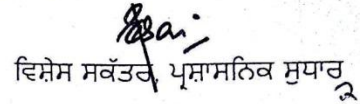 ਵਿਸ਼ੇਸ ਸਕੱਤਰ, ਪ੍ਰਸ਼ਾਸਨਿਕ ਸੁਧਾਰ